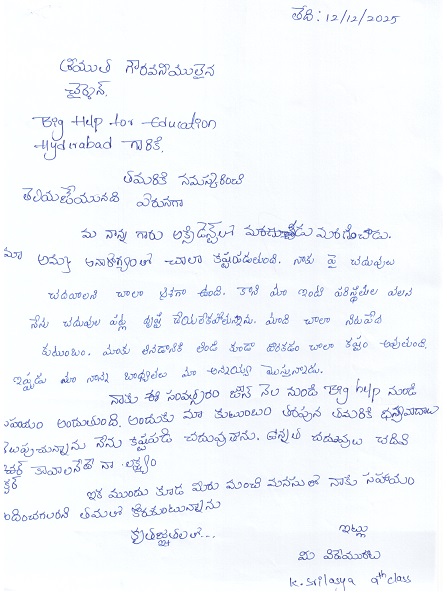 తేది: 12/12/2025
శ్రీయుత గౌరవనీయులైన
చైర్మెన్.
Big Help for Education
Hyderabad గారికి.
తమరికి నమస్కరించి
తెలియజేయునది ఏమనగా
మా నాన్న గారు అక్సిడెన్ట్‌లో మరణించాడు.
మా అమ్మ అనారోగ్యంతో చాలా కష్టపడుతుంది. నాకు పై చదువులు
చదవాలని చాలా ఆశగా ఉంది. కాని మా ఇంటి పరిస్థితుల వలన
నేను చదువుల పట్ల దృష్టి చేయలేకపోతున్నాను. మాది చాలా నిరుపేద
కుటుంబం. మాకు తినడానికి తిండి కూడా దొరకడం చాలా కష్టం అవుతుంది.
ఇప్పుడు మా నాన్న బాధ్యతలు మా అన్నయ్య మోస్తున్నాడు.
నాకు ఈ సంవత్సరం జూన్ నెల నుండి Big help నుండి
సహాయం అందుతుంది. అందుకు మా కుటుంబం తరపున తమరికి ధన్యవాదాలు
తెలుపుచున్నాను నేను కష్టపడి చదువుతాను. ఉన్నత చదువులు చదివి
కావాలనేదే నా లక్ష్యం
ఇక ముందు కూడ మీరు మంచి మనసుతో నాకు సహాయం
అందించగలరని తమతో కోరుకుంటున్నాను
కృతజ్ఞతలతో...
ఇట్లు
మీ విధేయురాలు
K. Srilasya 9th class